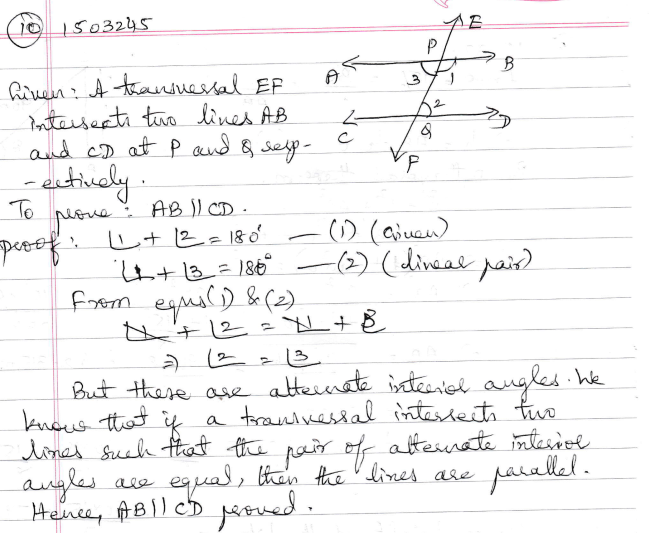 (iv) 1503245
E
P
A B
3 1
2
C D
Q
F
Given: A transversal EF
intersects two lines AB
and CD at P and Q resp-
-ectively.
To prove: AB || CD.
Proof: ∠1 + ∠2 = 180° — (1) (Given)
∠1 + ∠3 = 180° — (2) (linear pair)
From equs(1) & (2)
∠1 + ∠2 = ∠1 + ∠3
⇒ ∠2 = ∠3
But these are alternate interior angles. We
know that if a transversal intersects two
lines such that the pair of alternate interior
angles are equal, then the lines are parallel.
Hence, AB || CD proved.